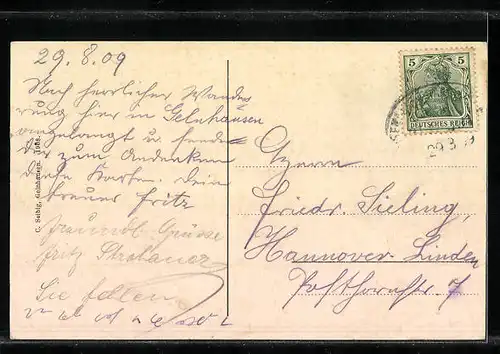 29.8.09
Nach herrlicher Wande
rung hier in Gelnhausen
angelangt u. sende
dir zum Andenken
diese Karte. Dein
treuer Fritz
freundl. Grüsse
Fritz
Sie fehlen
C. Selbig, Gelnhausen. 1908.
5 5
DEUTSCHES REICH
29.8.09
Herrn
Friedr. Sieling,
Hannover Linden
Posthornstr. 7